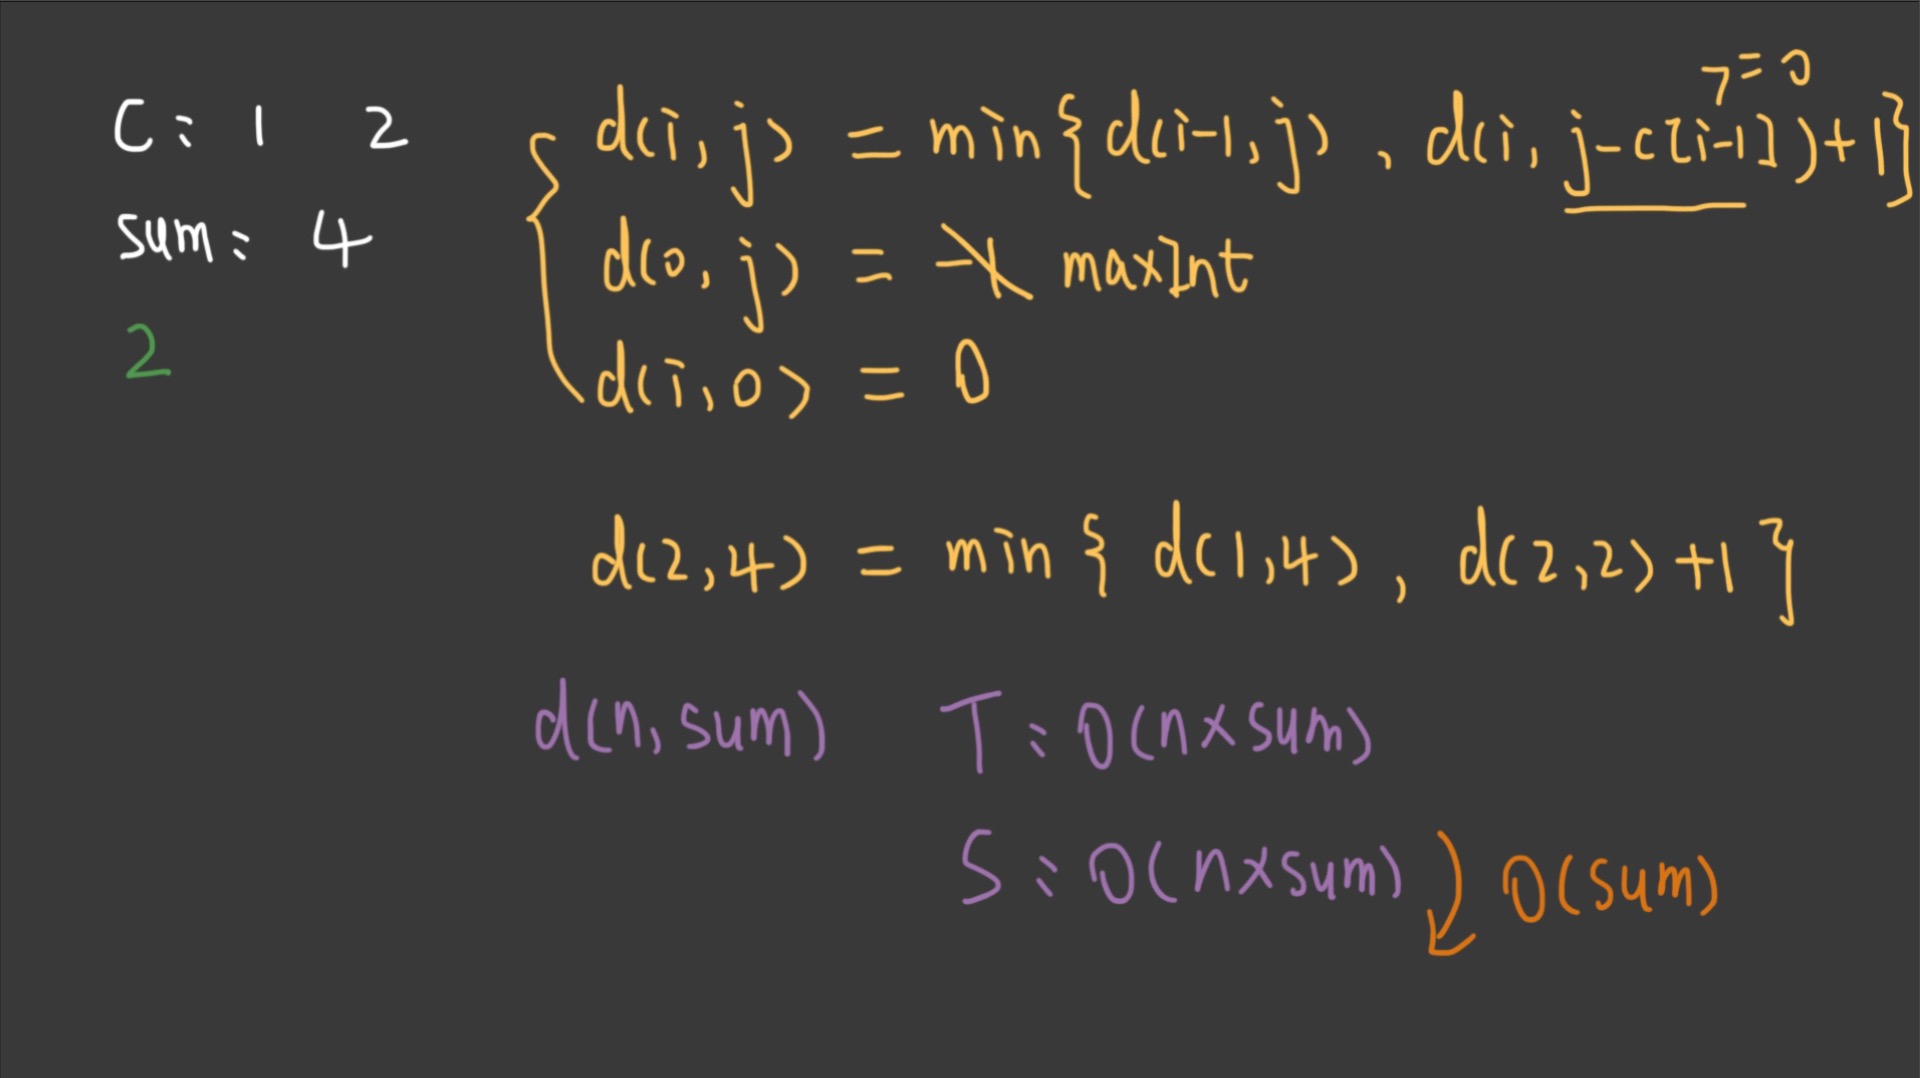 C: 1 2
sum: 4
2
>=0
d(i, j) = min{d(i-1, j), d(i, j-c[i-1])+1}
d(0, j) = -1 maxInt
d(i, 0) = 0
d(2,4) = min{ d(1,4), d(2,2)+1 }
d(n, sum) T: O(n×sum)
S: O(n×sum) O(sum)